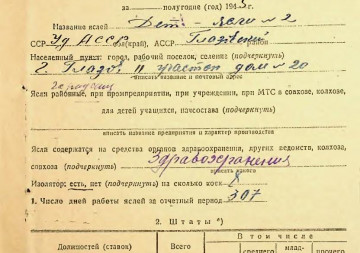 за полугодие (год) 1943 г.
Название яслей Дет-ясли № 2
ССР Уд АССР обл(край), АССР Глазовский район
Населенный пункт: город, рабочий поселок, селение (подчеркнуть)
г. Глазов II участок дом № 20
вписать название и почтовый адрес
Ясли районные, при промпредприятии, при учреждении, при МТС в совхозе, колхозе,
для детей учащихся, начсостава (подчеркнуть)
вписать название предприятия и характер производства
Ясли содержатся на средства органов здравоохранения, других ведомств, колхоза,
совхоза (подчеркнуть) Здравоохранения
вписать какого
Изолятор: есть, нет (подчеркнуть) на сколько коек
1. Число дней работы яслей за отчетный период 307
2. Штаты *)
Должностей (ставок) Всего В том числе
среднего млад- прочего